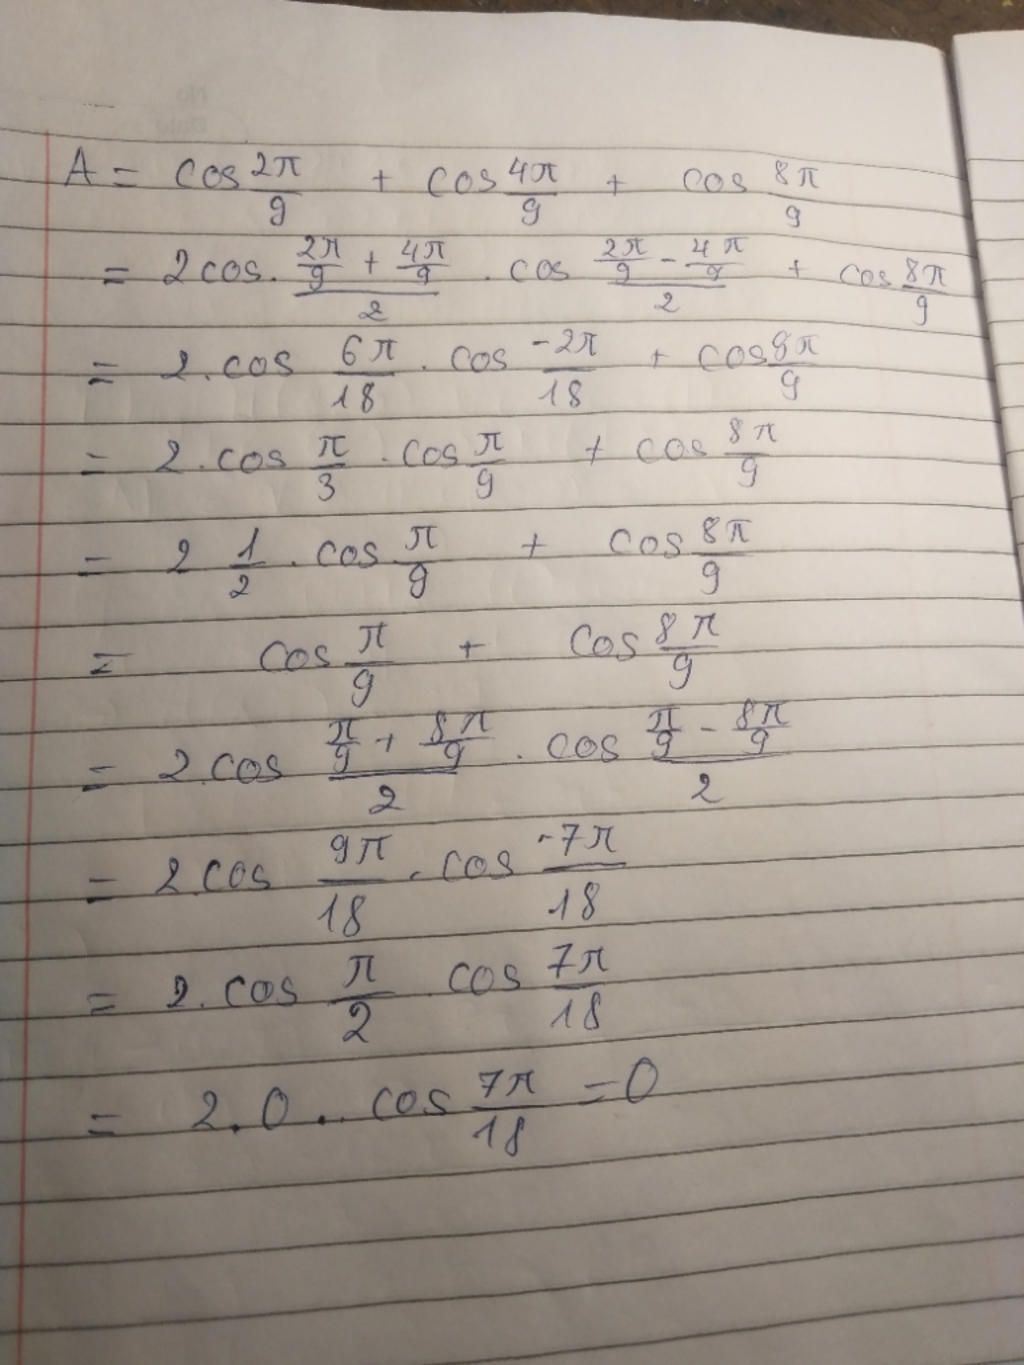 A = cos 2π/9 + cos 4π/9 + cos 8π/9
= 2cos. (2π/9 + 4π/9)/2 . cos (2π/9 - 4π/9)/2 + cos 8π/9
= 2.cos 6π/18 . cos -2π/18 + cos 8π/9
= 2.cos π/3 . cos π/9 + cos 8π/9
= 2 1/2 . cos π/9 + cos 8π/9
= cos π/9 + cos 8π/9
= 2.cos (π/9 + 8π/9)/2 . cos (π/9 - 8π/9)/2
= 2.cos 9π/18 . cos -7π/18
= 2.cos π/2 cos 7π/18
= 2.0.. cos 7π/18 = 0